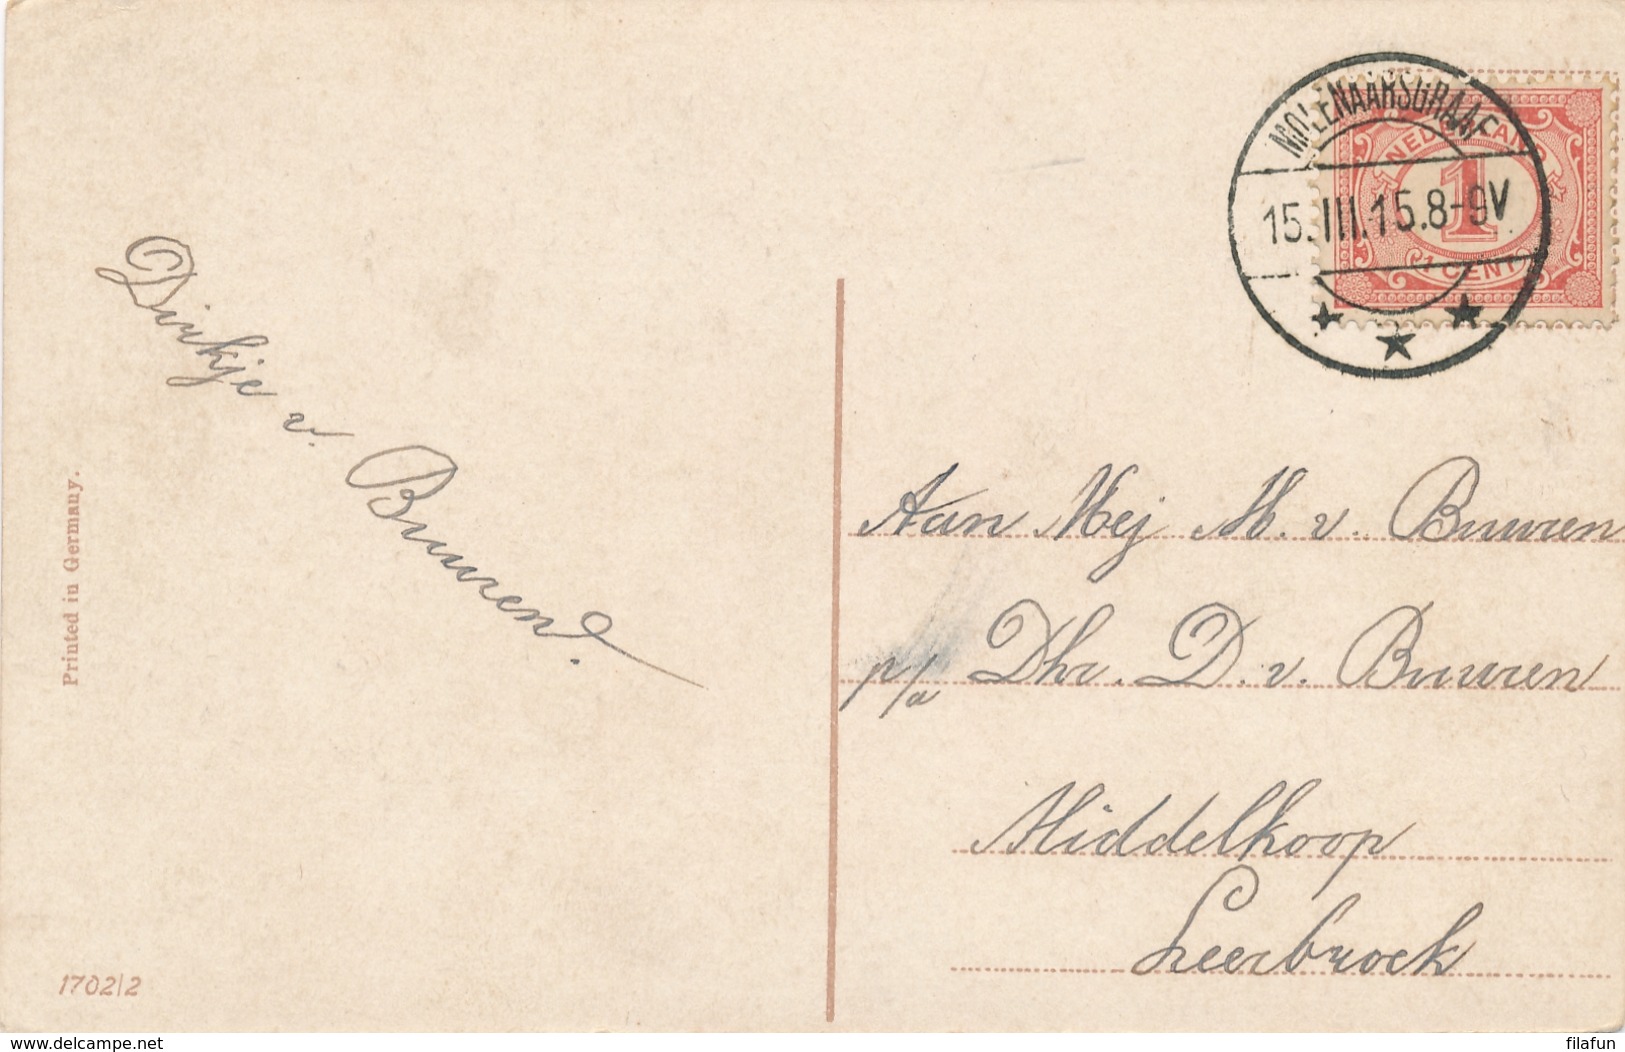 MOLENAARSGRAAF
15.III.15.8-9V
NEDERLAND
1
1 CENT
Dirkje v. Buuren.
Aan Mej M. v. Buuren
p/a Dhr. D. v. Buuren
Middelkoop
Leerbroek
Printed in Germany.
1702|2
www.delcampe.net
filafun